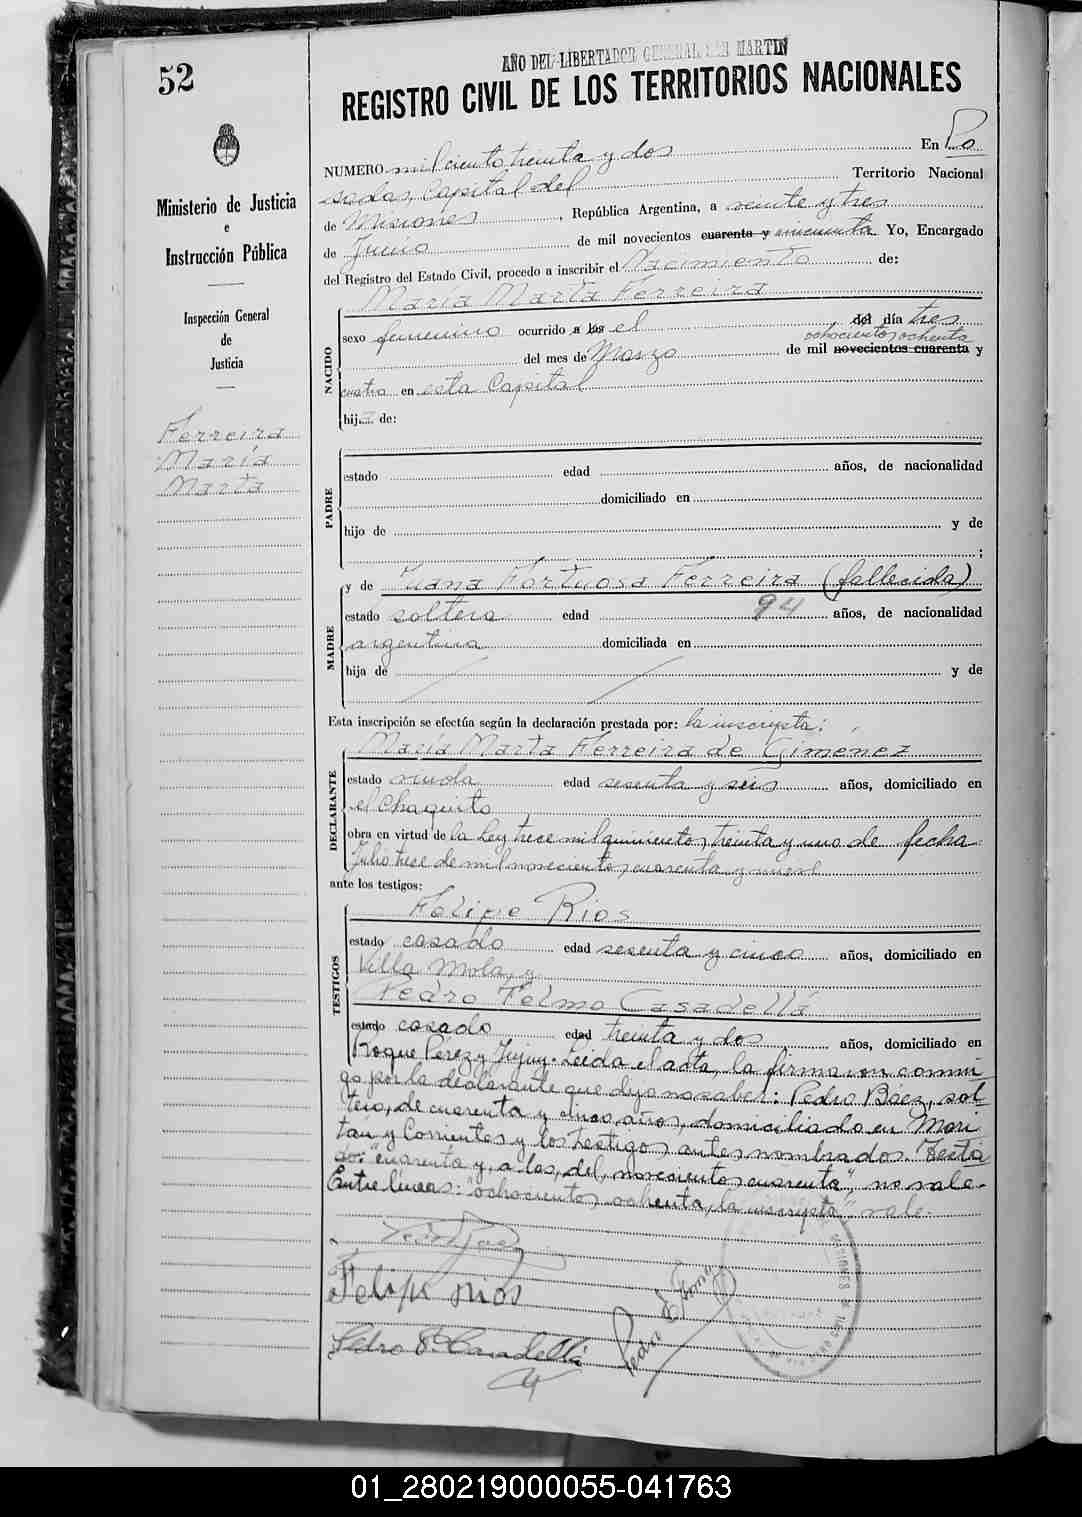 52
AÑO DEL LIBERTADOR GENERAL SAN MARTIN
REGISTRO CIVIL DE LOS TERRITORIOS NACIONALES
Ministerio de Justicia
e
Instrucción Pública
Inspección General
de
Justicia
Ferreira
María
Marta
NUMERO mil ciento treinta y dos En Po
sadas, Capital del Territorio Nacional
de Misiones, República Argentina, a veinte y tres
de Junio de mil novecientos cuarenta y cincuenta Yo, Encargado
del Registro del Estado Civil, procedo a inscribir el Nacimiento de:
María Marta Ferreira
NACIDO
sexo femenino ocurrido a las el del día tres
ochocientos ochenta
del mes de Marzo de mil novecientos cuarenta y
cuatro en esta Capital
hija de:
PADRE
estado edad años, de nacionalidad
domiciliado en
hijo de y de
;
MADRE
y de Juana Fortuosa Ferreira (fallecida)
estado soltera edad 94 años, de nacionalidad
argentina domiciliada en
hija de y de
Esta inscripción se efectúa según la declaración prestada por: la inscripta:
María Marta Ferreira de Giménez
DECLARANTE
estado viuda edad sesenta y seis años, domiciliado en
el Chaquito
obra en virtud de la Ley trece mil quinientos treinta y uno de fecha
Julio trece de mil novecientos cuarenta y nueve
ante los testigos:
Felipe Rios
TESTIGOS
estado casado edad sesenta y cinco años, domiciliado en
Villa Mola, y
Pedro Telmo Casadellá
estado casado edad treinta y dos, años, domiciliado en
Roque Pérez y Jujuy. Leida el acta, la firma con conmi-
go por la declarante que dijo no saber: Pedro Báez, sol-
tero, de cuarenta y cinco años, domiciliado en Mori
tan y Corrientes y los testigos antes nombrados. Testa
do: "cuarenta y, a las, del, novecientos cuarenta", no vale.
Entre lineas: "ochocientos ochenta, la inscripta" vale.
Felipe Rios
Pedro T. Casadellá
MISIONES
01_280219000055-041763